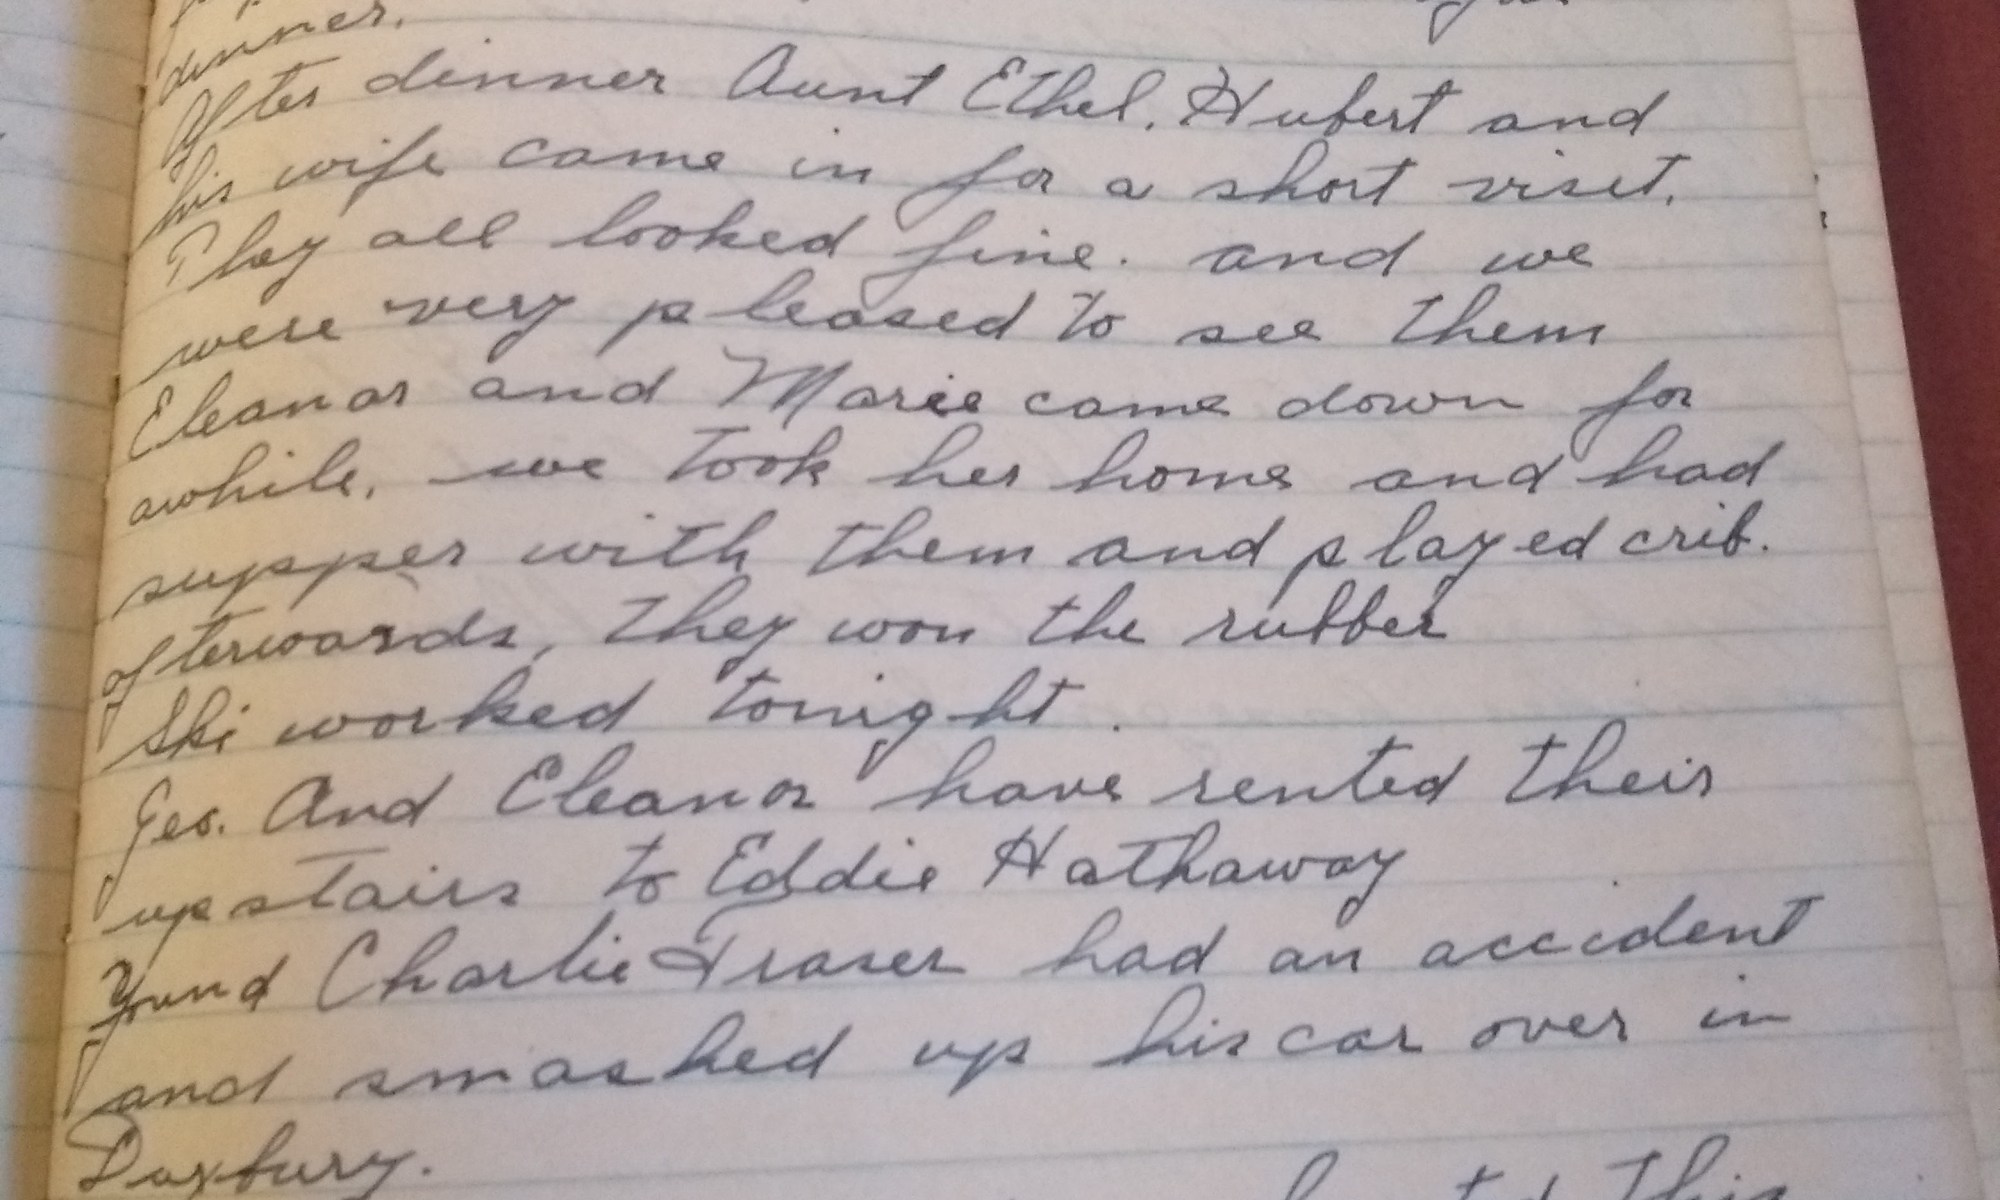 dinner.
After dinner Aunt Ethel, Hubert and
his wife came in for a short visit.
They all looked fine. and we
were very pleased to see them
Eleanor and Marie came down for
awhile, we took her home and had
supper with them and played crib.
afterwards, they won the rubber
Ski worked tonight.
Geo. And Eleanor have rented their
upstairs to Eddie Hathaway
Charlie Fraser had an accident
and smashed up his car over in
Duxbury.
this